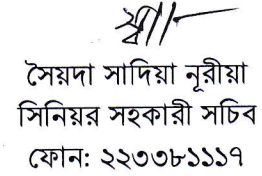 সৈয়দা সাদিয়া নূরীয়া
সিনিয়র সহকারী সচিব
ফোন: ২২৩৩৮১১১৭